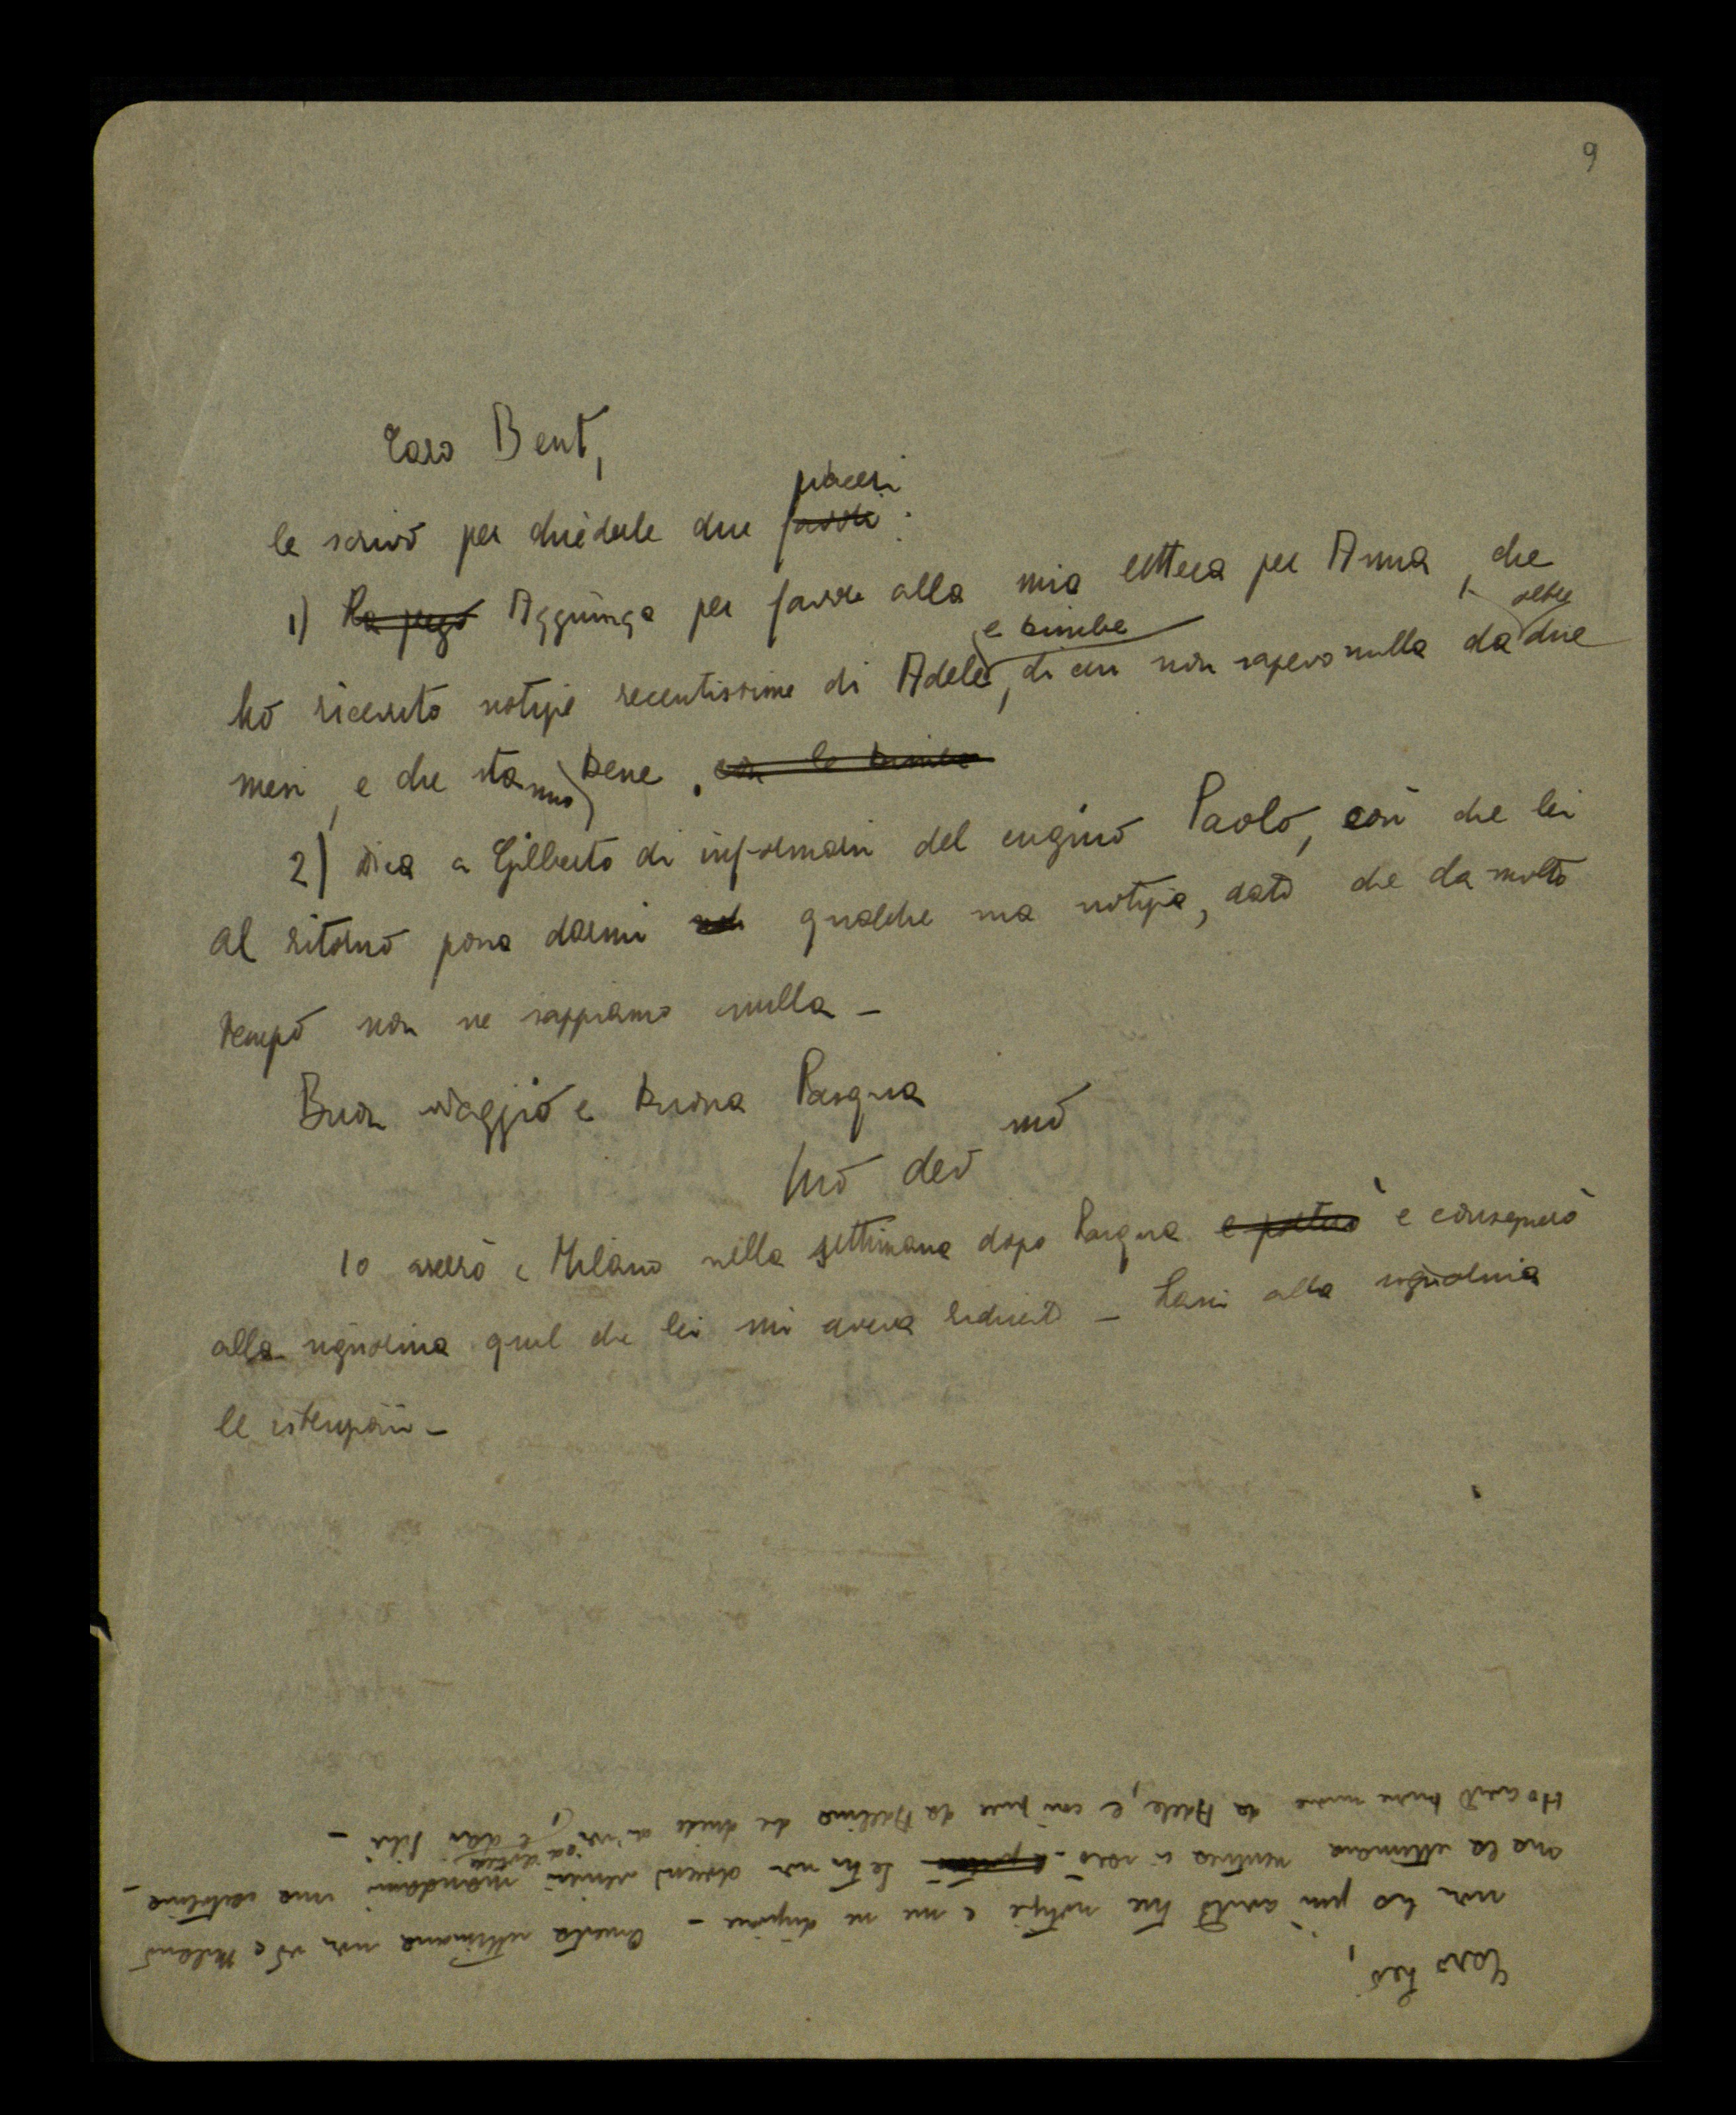 9
Caro Bent,
le scrivo per chiederle due favori piaceri:
1) La prego Aggiunga per favore alla mia lettera per Anna, che
ho ricevuto notizie recentissime di Adele e bimbe, di cui non sapevo nulla da oltre due
mesi, e che stanno bene. con le bimbe
2) Dica a Gilberto di informarsi del cugino Paolo, così che lei
al ritorno possa darmi qualche sua notizia, dato che da molto
tempo non ne sappiamo nulla –
Buon viaggio e buona Pasqua
suo
Suo dev
Io verrò a Milano nella settimana dopo Pasqua e porterò e consegnerò
alla signorina quel che lei mi aveva richiesto – Lasci alla signorina
le istruzioni –
Caro Leo,
non ho più avuto tue notizie e me ne dispiace – Questa settimana non vo a Milano
ma la settimana ventura ci sarò – Se tu non dovessi venirci mandami una cartolina –
Ho avuto buone nuove da Adele, e così pure da che chiede di voi, e dar